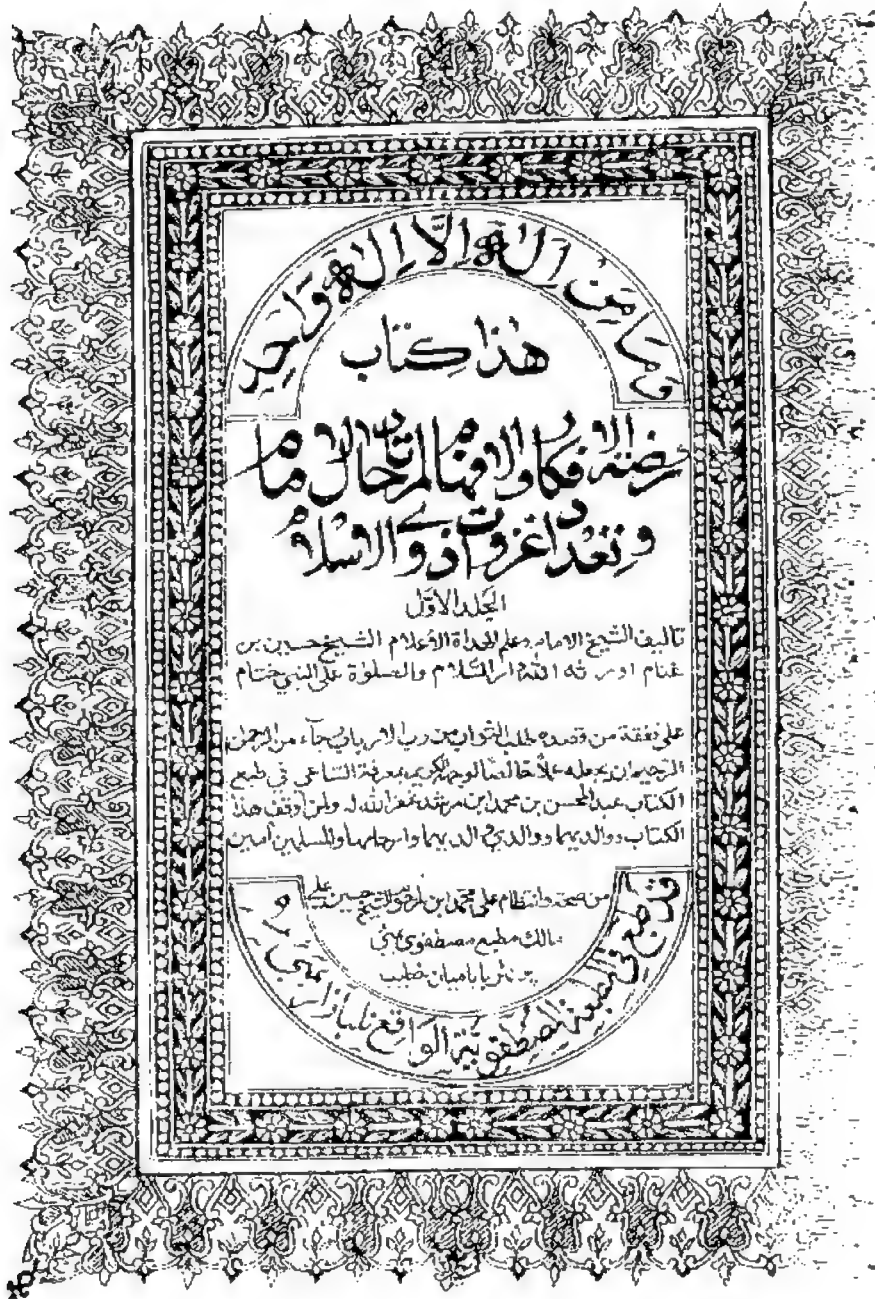 وَمَا مِنْ إِلٰهٍ إِلَّا إِلٰهٌ وَاحِدٌ
هذا كتاب
روضة الافكار والافهام لمرتاد حال الامام
وتعداد غزوات ذوي الاسلام
الجلد الاول
تأليف الشيخ الامام وعلم الهداة الاعلام الشيخ حسين بن
غنام اورثه الله دار السلام والصلوة على النبي ختام
على نفقة من قصده طلب الثواب من رب الارباب رجآء من الرحمن
الرحيم ان يجعله عملا خالصا لوجهه الكريم بمعرفة الساعي في طبع
الكتاب عبد المحسن بن محمد ابن مرشد غفر الله له ولمن اوقف هذا
الكتاب ووالديهما ووالدي والديهما وارحامهما والمسلمين آمين
من صحة وانتظام علي محمد ابن المرحوم الشيخ حسين علي
مالك مطبع مصطفوي بمبئي
بندر بابا ميان صاحب
قد طبع في المطبعة المصطفوية الواقع بازار بمبئي